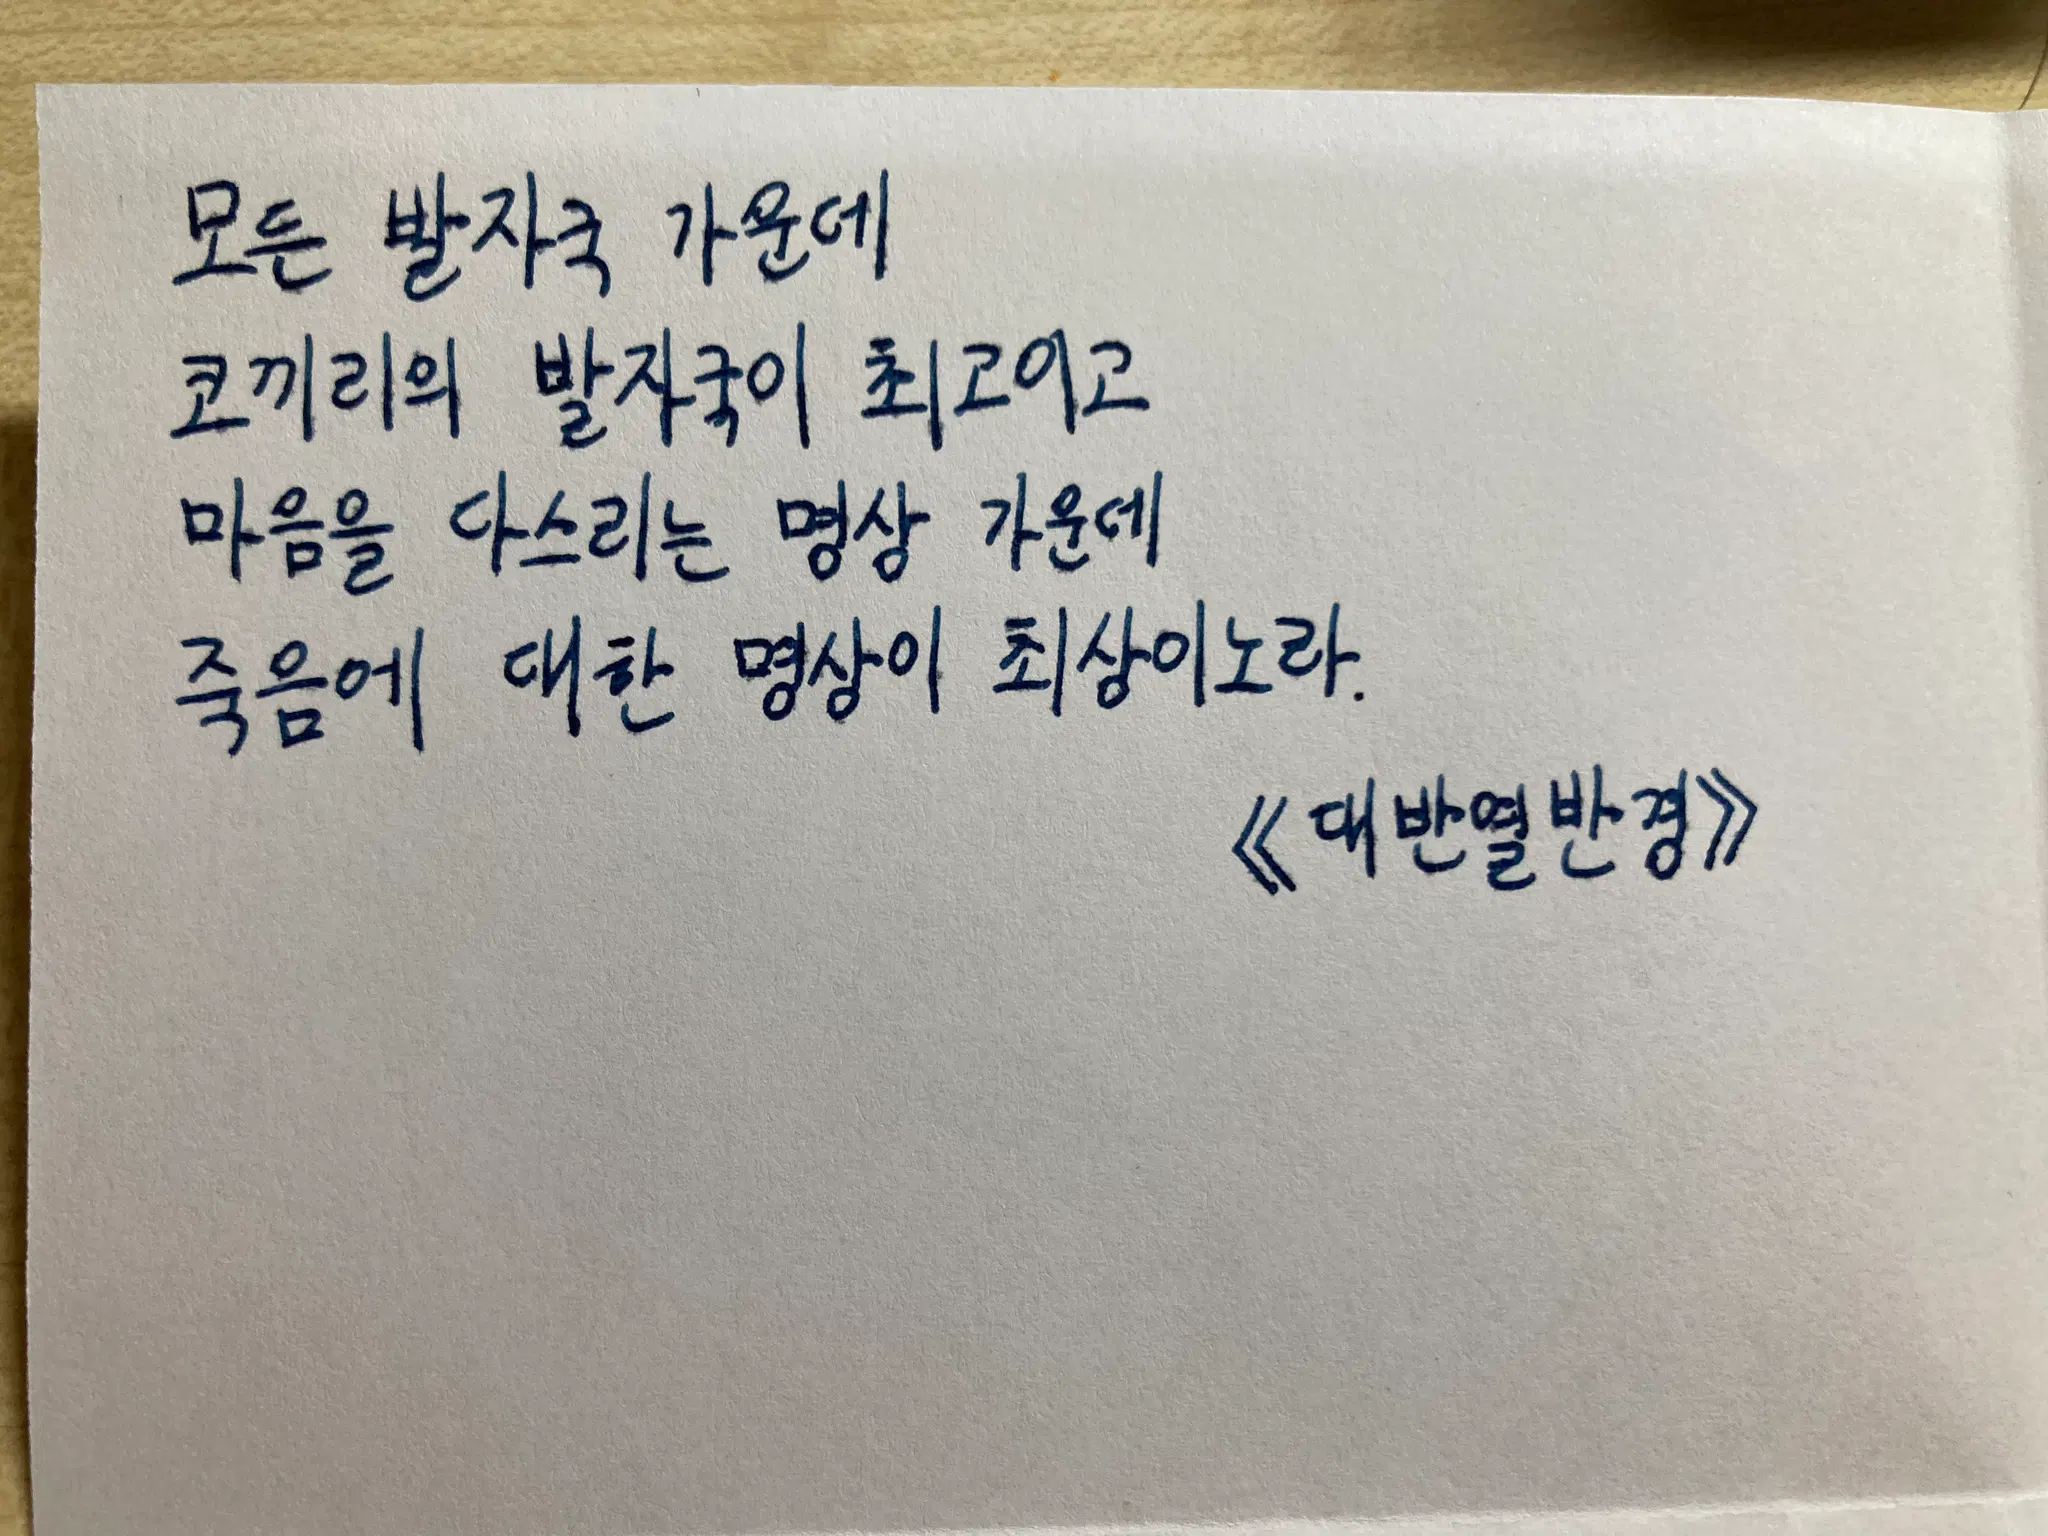 모든 발자국 가운데
코끼리의 발자국이 최고이고
마음을 다스리는 명상 가운데
죽음에 대한 명상이 최상이노라.
《대반열반경》